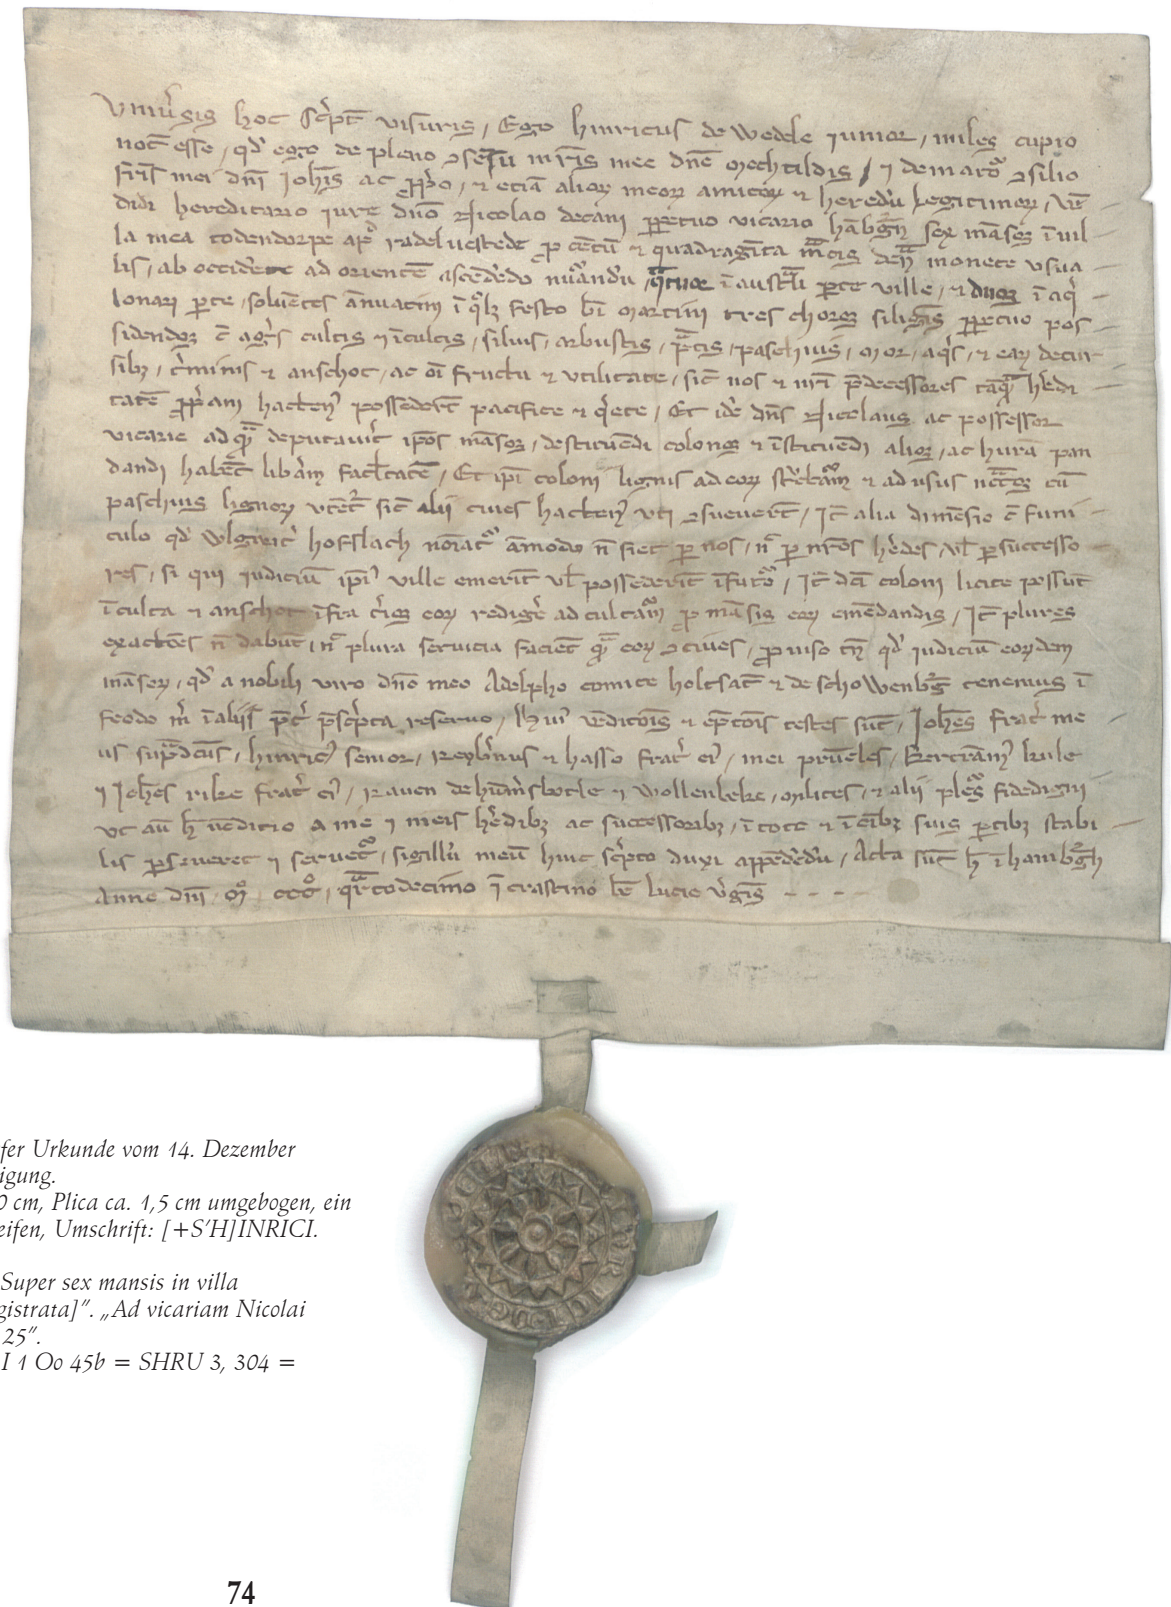 Univ̉sis hoc sc̉pt̄ visuris / Ego hinricus de Wedele iunior / miles cupio
not̄ esse / qd̓ ego de pleno ɔsēsu mr̄is mee dn̄e Mechtildis / ⁊ de maᵗo ɔsilio
fr̄is mei dn̄i Joh̄is ac ꝓp̉o / ⁊ eciā alioꝝ meoꝝ amicoꝝ ⁊ heredū legitimoꝝ / vē
didi hereditario iure dn̄o Nicolao decani ꝑpetuo vicario hābḡh sex māsos ī vil
la mea todendorpe apᵈ radeluestede ꝓ cētū ⁊ quadragīta mr̄cis den̄ monete vsua
lis / ab occidēte ad orientē ascēdēdo nūandū / qᵃtuor ī aust̄li ꝑte ville / ⁊ duos ī aq̉
lonari ꝑte / soluētes ānuatim ī qᵒlꝫ festo bī Martini tres choros siligīs ꝑpetuo pos
sidendos c̄ agr̉s cultis ⁊ īcultis / siluis / arbustis / pᵃtis / pascuis / Mor / aq̉s / ⁊ eaꝝ decur
sibꝫ / t̉minis ⁊ anschot / ac oī fructu ⁊ vtilitate / sic̄ nos ⁊ nr̄i p̄decessores tāqᵃ h̉edi
tatē ꝓp̉am hacten⁹ possedert̄ pacifice ⁊ q̉ete / Et idē dn̄s Nicolaus ac possessor
vicarie ad qᵃ deputauīt ip̄os māsos / destituēdi colonos ⁊ īstituēdi alios / ac huram pan
dandi habēt lib̉am facl̄tatē / Et ip̄i coloni lignis ad eoꝝ st̉cᵃm ⁊ ad usus nc̄c̄os cū
pascuis lignoꝝ vtēt̉ sic̄ alij ciues hacten⁹ vti ɔsueuert̄ / Jt̄ alia dimēsio c̄ funi
culo qd̓ wlgarit̉ hofslach nōiatᵘr āmodo n̄ fiet ꝑ nos / nᶜ ꝑ nr̄os h̉edes / vl̄ ꝑ successo
res / si qui iudiciū ip̄i⁹ ville emerīt vl̄ possederīt ī futᵒ / Jt̄ dc̄i coloni licite possūt
īculta ⁊ anschot īfra t̉mīos eoꝝ redig̉e ad cultᵃm ꝓ māsis eoꝝ emēdandis / Jt̄ plures
exactōes n̄ dabūt / nᶜ plura seruicia faciēt qᵃ eoꝝ ɔciues / ꝓuiso tn̄ qd̓ iudiciū eorꝯdem
māsoꝝ / qd̓ a nobili viro dn̄o meo Adolpho comite holtsac̄ ⁊ de schoWenbḡ tenemus ī
feodo m̉ ī alijs p̄t̉ p̄sc̉pta reservo / Hui⁹ vēditōis ⁊ ēptōis testes sūt / Joh̄es frat̉ me
us supᵃdc̄us / hinric⁹ senior / Reyb̉nus ⁊ hasso frat̉ ei⁹ / mei pᵃtrueles / Bertrām⁹ kule
⁊ Joh̄es rike frat̉ ei⁹ / Rauen de hūm̉sbotle ⁊ Wollenbeke / Milites / ⁊ alij plēs fidedigni
vt aū h̄ vēditio a me ⁊ meis h̉edibꝫ ac successoribꝫ / ī toto ⁊ ī ōibꝫ suis ꝑtibꝫ stabi
lis ꝑseueret ⁊ seruetᵘr / sigillū meū huic sc̉pto duxi appēdēdū / Acta sūt h̄ ī hambḡh
Anno dn̄i Mᵒ cccᵒ / qᵃrtodecimo ī crastino bē lucie v̉gīs - - - -
fer Urkunde vom 14. Dezember
igung.
0 cm, Plica ca. 1,5 cm umgebogen, ein
eifen, Umschrift: [+S'H]INRICI.
Super sex mansis in villa
gistrata]". „Ad vicariam Nicolai
25".
I 1 Oo 45b = SHRU 3, 304 =
74